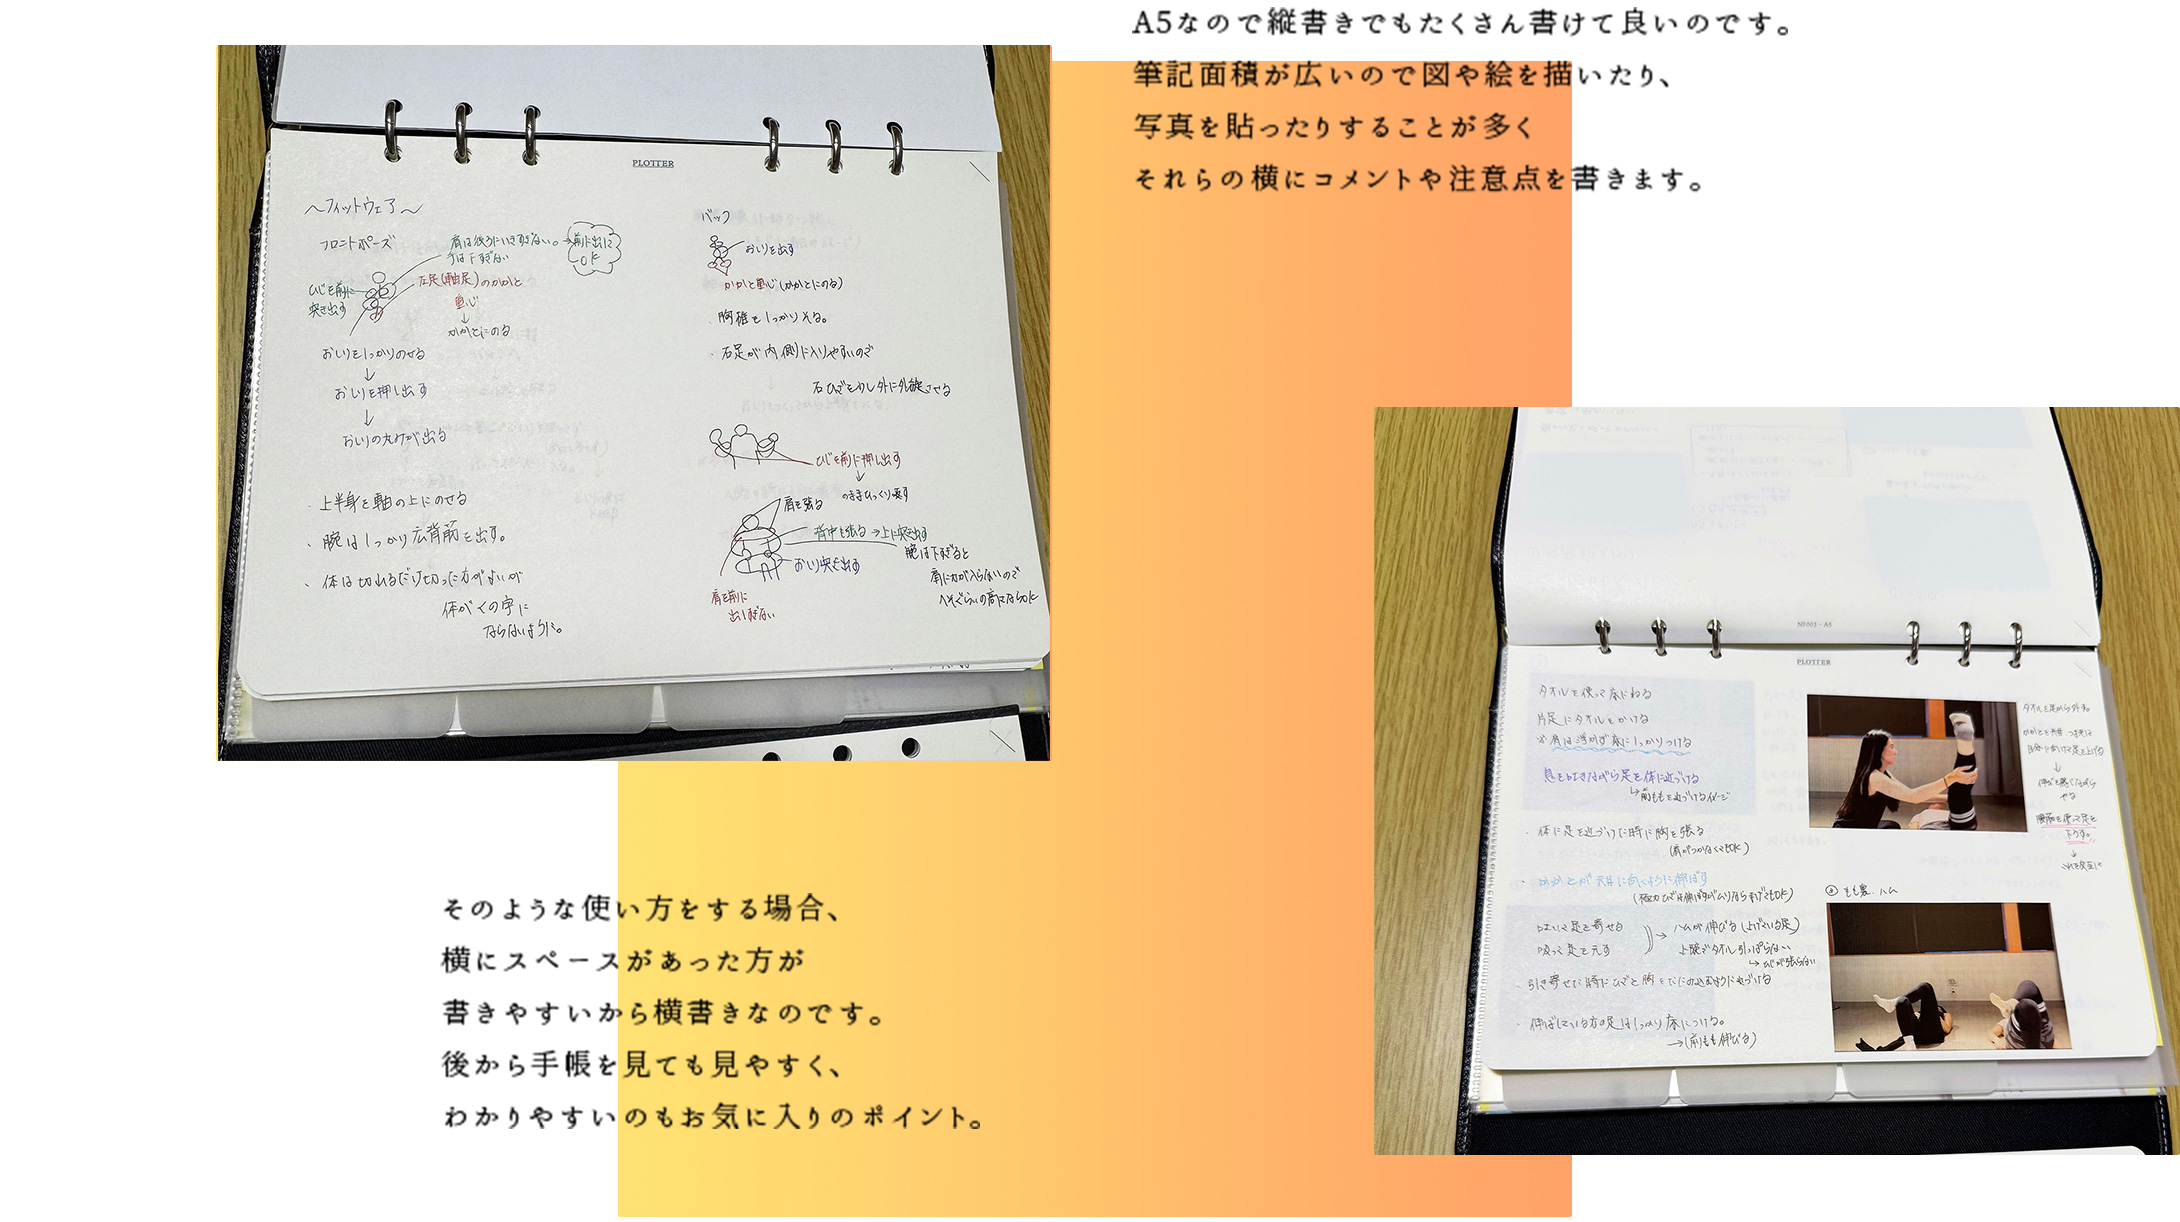 A5なので縦書きでもたくさん書けて良いのです。
筆記面積が広いので図や絵を描いたり、
写真を貼ったりすることが多く
それらの横にコメントや注意点を書きます。
PLOTTER
〜フィットウェア〜
フロントポーズ
肩は後ろにいきすぎない。→前に出して
OK
手は下すぎない
左足(軸足)のかかと
重心
↓
かかとにのる
ひじを前に
突き出す
おしりをしっかりのせる
↓
おしりを押し出す
↓
おしりの丸みが出る
・上半身を軸の上にのせる
・腕はしっかり広背筋を出す。
・体は切れるだけ切った方がよいが
体がくの字に
ならないように。
バック
おしりを出す
かかと重心(かかとにのる)
・胸椎をしっかりそる。
・右足が内側に入りやすいので
右ひざを少し外に外旋させる
ひじを前に押し出す
↓
のままひっくり返す
肩を張る
背中を張る→上に突き出す
おしり突き出す
腕は下すぎると
肩に力が入らないので
へそぐらいの高さならOK
肩を前に
出しすぎない
NF003-A5
PLOTTER
タオルを使って床にねる
片足にタオルをかける
※肩は浮かず床にしっかりつける
息をはきながら足を体に近づける
↳前ももを近づけるイメージ
・体に足を近づけた時に胸を張る
(肩がつかなくてもOK)
・かかとが天井に向くように伸ばす
はいて足を寄せる
吸って足を元す
→ハムが伸びる(上げている足)
上腕でタオル引っぱらない
↳ひじが張らない
・伸ばしている方の足はしっかり床につける。
→(前もも伸びる)
タオルを足から外す。
↓
伸びを感じながら
やる
腹筋を使って足を
下ろす。
↓
これを交互に
②もも裏、ハム
そのような使い方をする場合、
横にスペースがあった方が
書きやすいから横書きなのです。
後から手帳を見ても見やすく、
わかりやすいのもお気に入りのポイント。